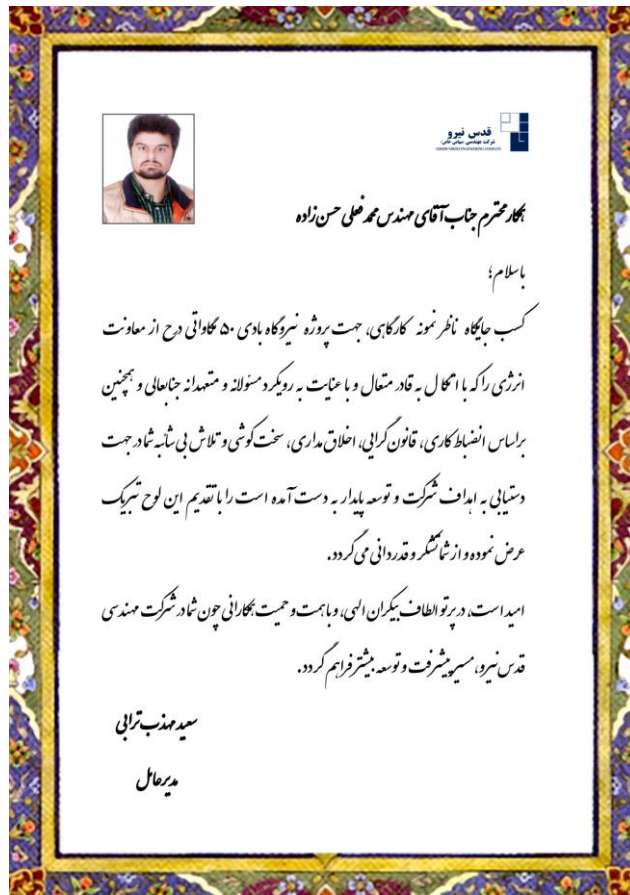 قدس نیرو
شرکت مهندسی (سهامی خاص)
GHODS NIROO ENGINEERING COMPANY
همکار محترم جناب آقای مهندس محمد فعلی حسن زاده
باسلام؛
کسب جایگاه ناظر نمونه کارگاهی، جهت پروژه نیروگاه بادی ۵۰ مگاواتی درح از معاونت
انرژی را که با اتکال به قادر متعال و با عنایت به رویکرد مسئولانه و متعهدانه جنابعالی و همچنین
براساس انضباط کاری، قانون گرایی، اخلاق مداری، سخت کوشی و تلاش بی شائبه شما در جهت
دستیابی به اهداف شرکت و توسعه پایدار به دست آمده است را با تقدیم این لوح تبریک
عرض نموده و از شما تشکر و قدردانی می گردد.
امید است، در پرتو الطاف بیکران الهی، و با همت و حمیت همکارانی چون شما در شرکت مهندسی
قدس نیرو، مسیر پیشرفت و توسعه بیشتر فراهم گردد.
سعید مهذب ترابی
مدیرعامل